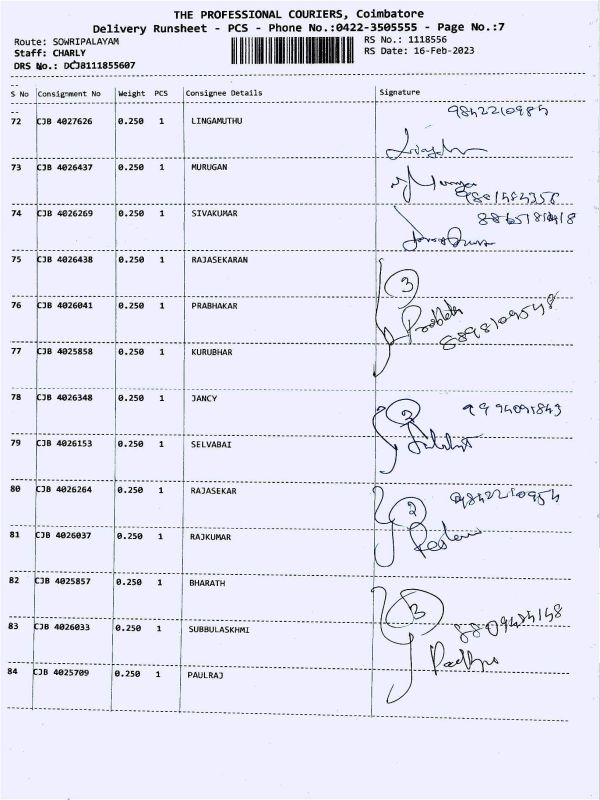 THE PROFESSIONAL COURIERS, Coimbatore
Delivery Runsheet - PCS - Phone No.:0422-3505555 - Page No.:7
Route: SOWRIPALAYAM
RS No.: 1118556
Staff: CHARLY
RS Date: 16-Feb-2023
DRS No.: DCJ8111855607
S No Consignment No Weight PCS Consignee Details Signature
72 CJB 4027626 0.250 1 LINGAMUTHU
73 CJB 4026437 0.250 1 MURUGAN
74 CJB 4026269 0.250 1 SIVAKUMAR
75 CJB 4026438 0.250 1 RAJASEKARAN
3
76 CJB 4026041 0.250 1 PRABHAKAR
77 CJB 4025858 0.250 1 KURUBHAR
78 CJB 4026348 0.250 1 JANCY
2
79 CJB 4026153 0.250 1 SELVABAI
80 CJB 4026264 0.250 1 RAJASEKAR
2
81 CJB 4026037 0.250 1 RAJKUMAR
82 CJB 4025857 0.250 1 BHARATH
3
83 CJB 4026033 0.250 1 SUBBULASKHMI
84 CJB 4025709 0.250 1 PAULRAJ